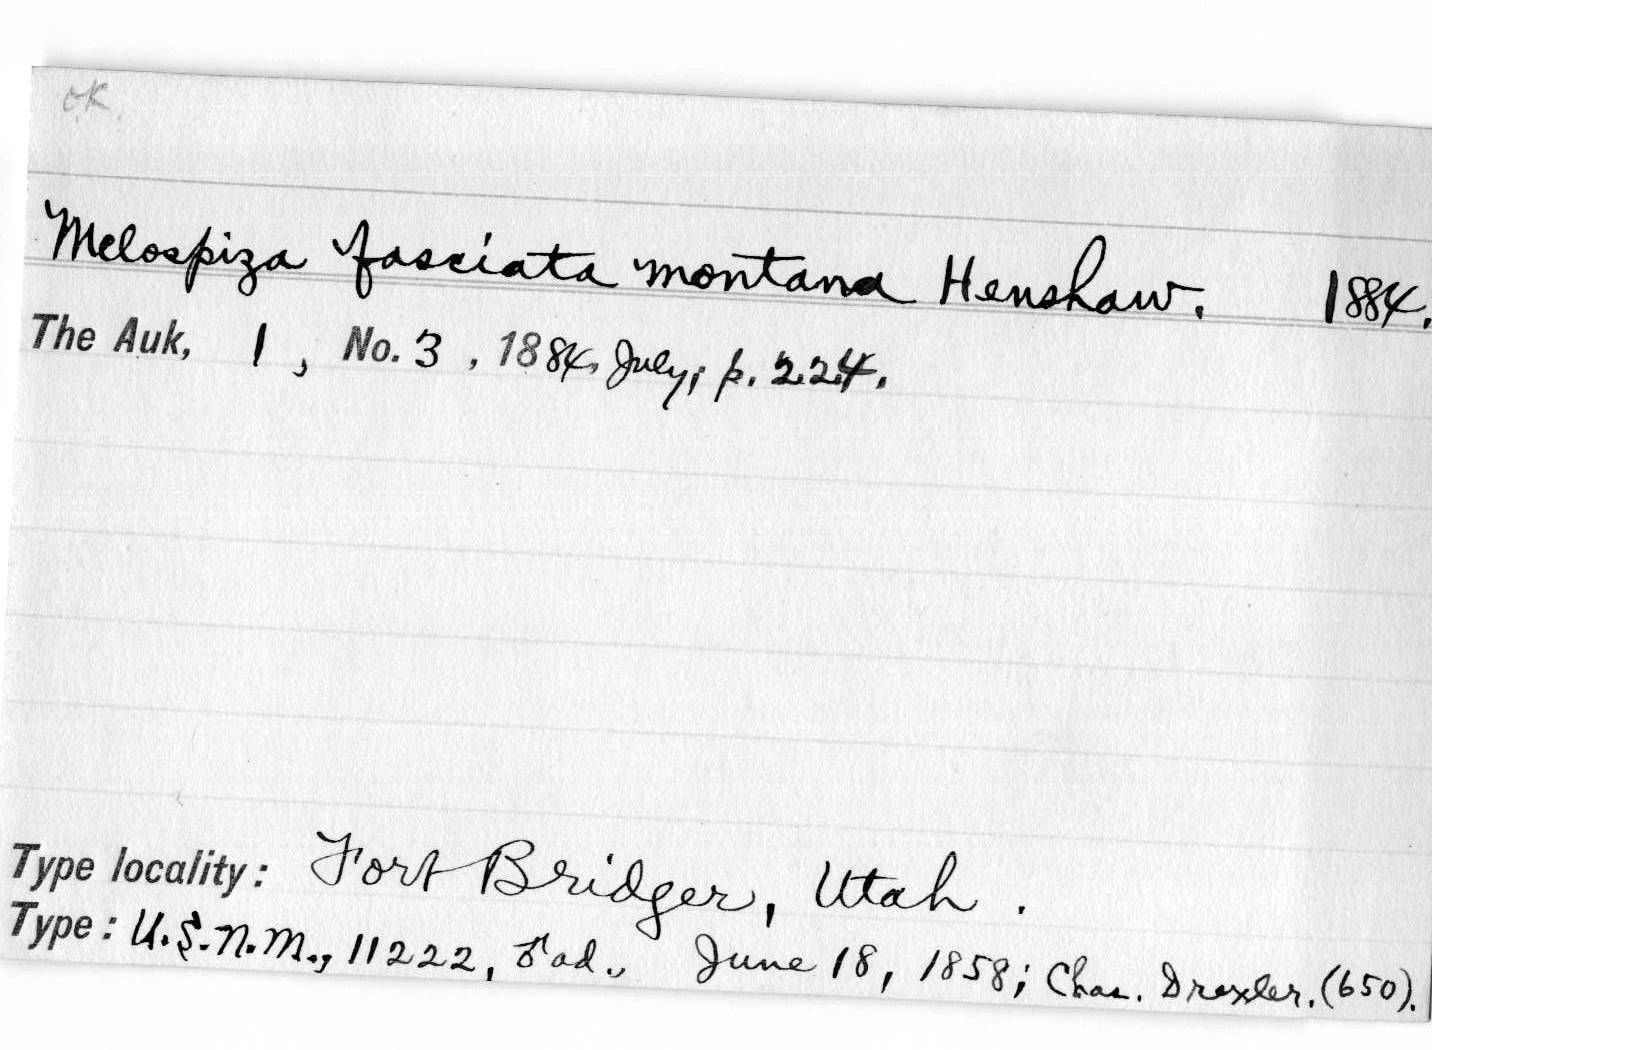 O.K.
Melospiza fasciata montana Henshaw. 1884.
The Auk, 1, No. 3, 1884, July, p. 224.
Type locality: Fort Bridger, Utah.
Type: U.S.N.M., 11222, ad., June 18, 1858; Chas. Drexler. (650).